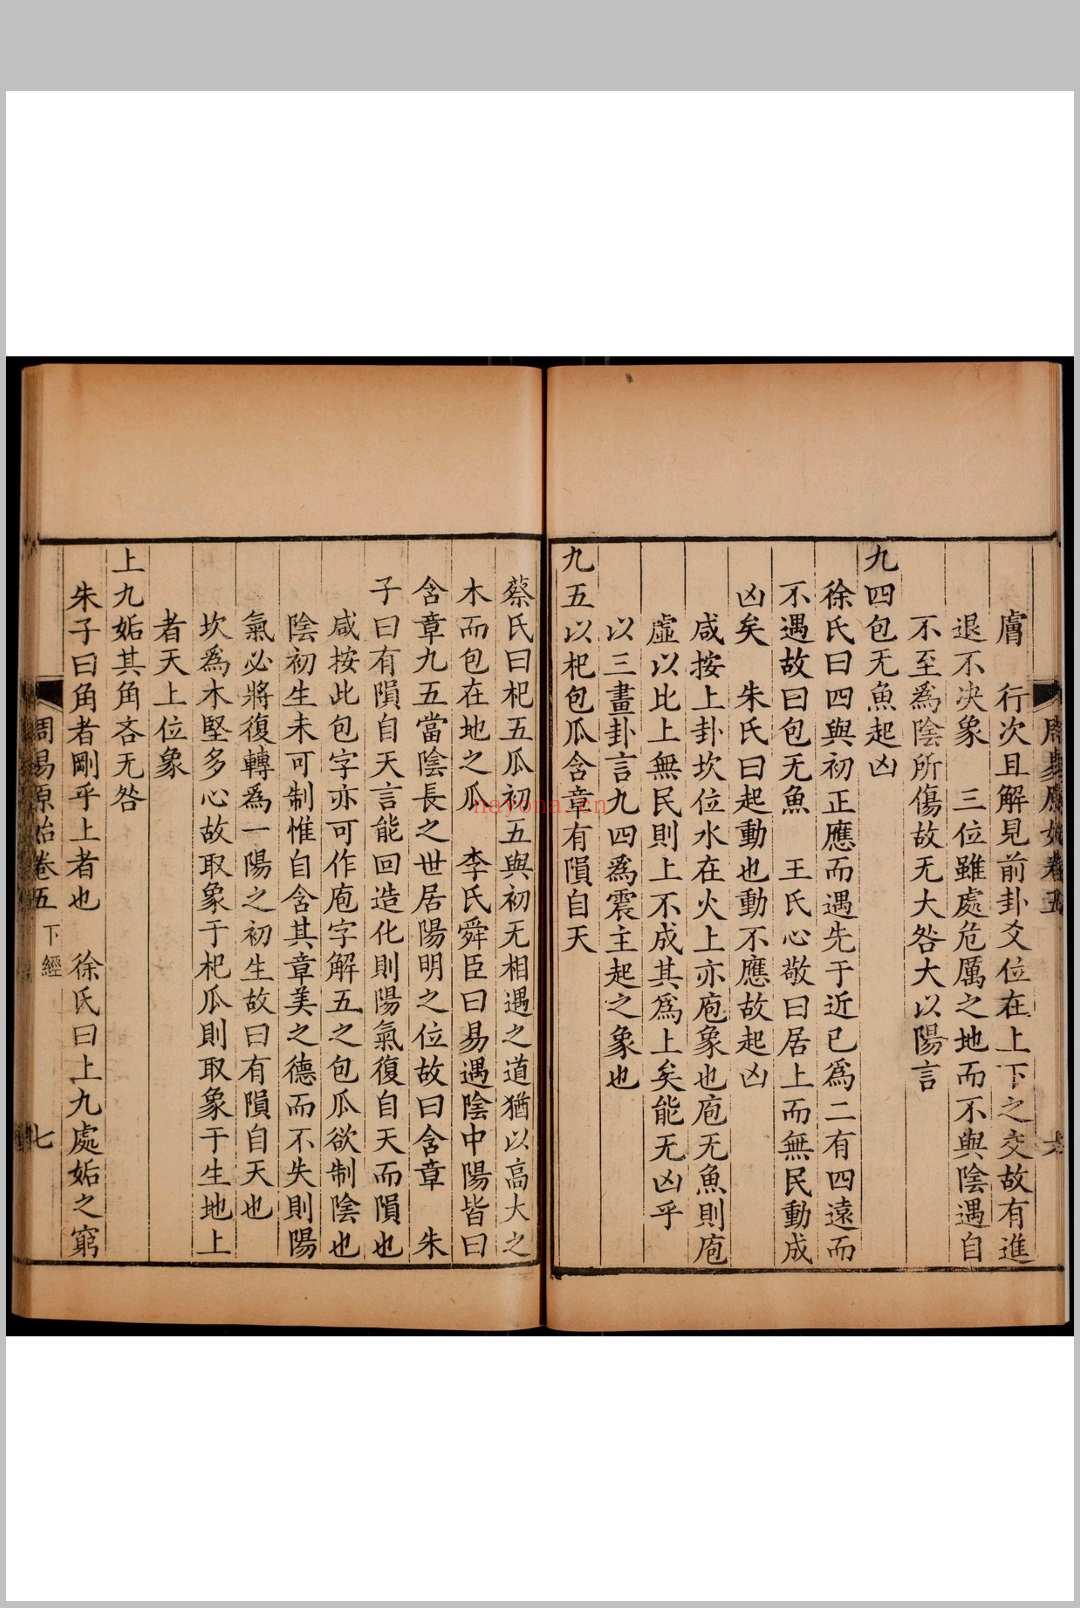 膚 行次且解見前卦爻位在上下之交故有進
退不决象 三位雖處危厲之地而不與陰遇自
不至爲陰所傷故无大咎大以陽言
九四包无魚起凶
徐氏曰四與初正應而遇先于近已爲二有四遠而
不遇故曰包无魚 王氏心敬曰居上而無民動成
凶矣 朱氏曰起動也動不應故起凶
咸按上卦坎位水在火上亦庖象也庖无魚則庖
虛以比上無民則上不成其爲上矣能无凶乎
以三畫卦言九四爲震主起之象也
九五以杞包瓜含章有隕自天
蔡氏曰杞五瓜初五與初无相遇之道猶以高大之
木而包在地之瓜 李氏舜臣曰易遇陰中陽皆曰
含章九五當陰長之世居陽明之位故曰含章 朱
子曰有隕自天言能回造化則陽氣復自天而隕也
咸按此包字亦可作庖字解五之包瓜欲制陰也
陰初生未可制惟自含其章美之德而不失則陽
氣必將復轉爲一陽之初生故曰有隕自天也
坎爲木堅多心故取象于杞瓜則取象于生地上
者天上位象
上九姤其角吝无咎
朱子曰角者剛乎上者也 徐氏曰上九處姤之窮
周易原始卷五 下經 七
nayona.cn